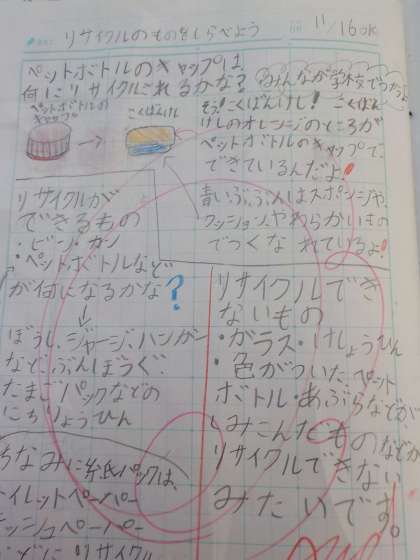 リサイクルのものをしらべよう
11/16 OK
ペットボトルのキャップは、
何にリサイクルされるかな?
みんなが学校でつかうよ
ペットボトルの
キャップ
→
こくばんけし
そう!こくばんけし! こくばん
けしのオレンジのところが
ペットボトルのキャップで、
できているんだよ!
青いぶぶんはスポンジや、
クッション、やわらかいもの
でつくなれているよ!
リサイクルが
できるもの
・ビン・カン
・ペットボトルなど
が何になるかな?
↓
ぼうし、ジャージ、ハンガー
など、ぶんぼうぐ、
たまごパックなどの
にちりょうひん
ちなみに紙パックは、
トイレットペーパー
ティッシュペーパー
などにリサイクル
リサイクルでき
ないもの
・ガラス・けしょうひん
・色がついた、ペット
ボトル・あぶらなどが
しみこんだものなどが
リサイクルできない
みたいです。